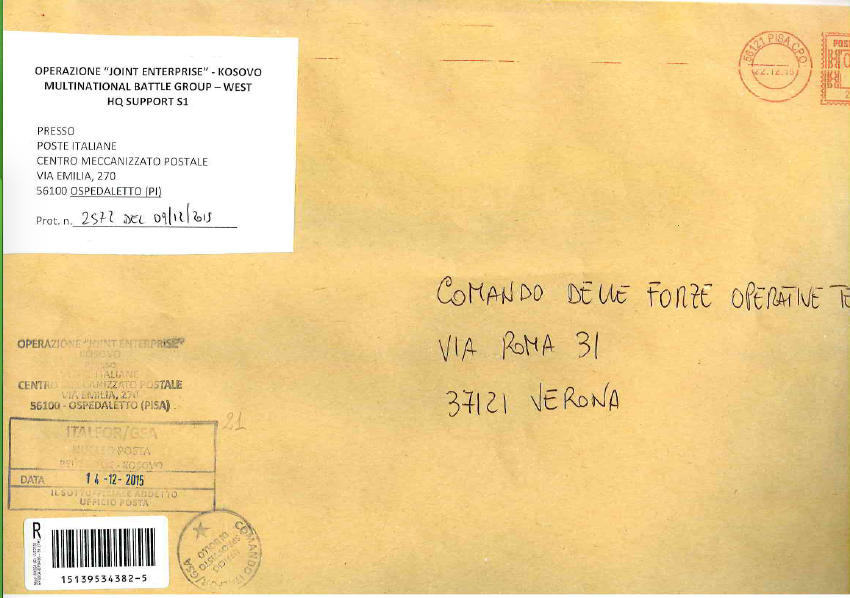 OPERAZIONE "JOINT ENTERPRISE" - KOSOVO
MULTINATIONAL BATTLE GROUP – WEST
HQ SUPPORT S1
PRESSO
POSTE ITALIANE
CENTRO MECCANIZZATO POSTALE
VIA EMILIA, 270
56100 OSPEDALETTO (PI)
Prot. n. 2572 DEL 09/12/2015
56121 PISA CPO
22.12.15
POST
COMANDO DELLE FORZE OPERATIVE TE
VIA ROMA 31
37121 VERONA
OPERAZIONE "JOINT ENTERPRISE"
KOSOVO
PRESSO
POSTE ITALIANE
CENTRO MECCANIZZATO POSTALE
VIA EMILIA, 270
56100 - OSPEDALETTO (PISA)
21
ITALFOR/GSA
NUCLEO POSTA
KOSOVO
DATA 14-12-2015
IL SOTTUFFICIALE ADDETTO
UFFICIO POSTA
R
15139534382-5
COMANDO ITALFOR/GSA